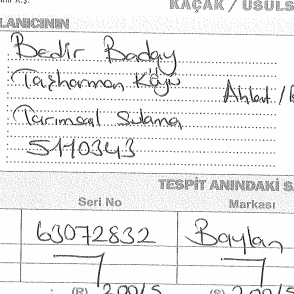 KAÇAK / USULS
LANICININ
Bedir Baday
Taşharman Köyü
Ahlat /
Tarımsal Sulama
5110343
TESPİT ANINDAKİ S
Seri No
Markası
63072832
Baylan
(R) 200/5
(S) 200/5